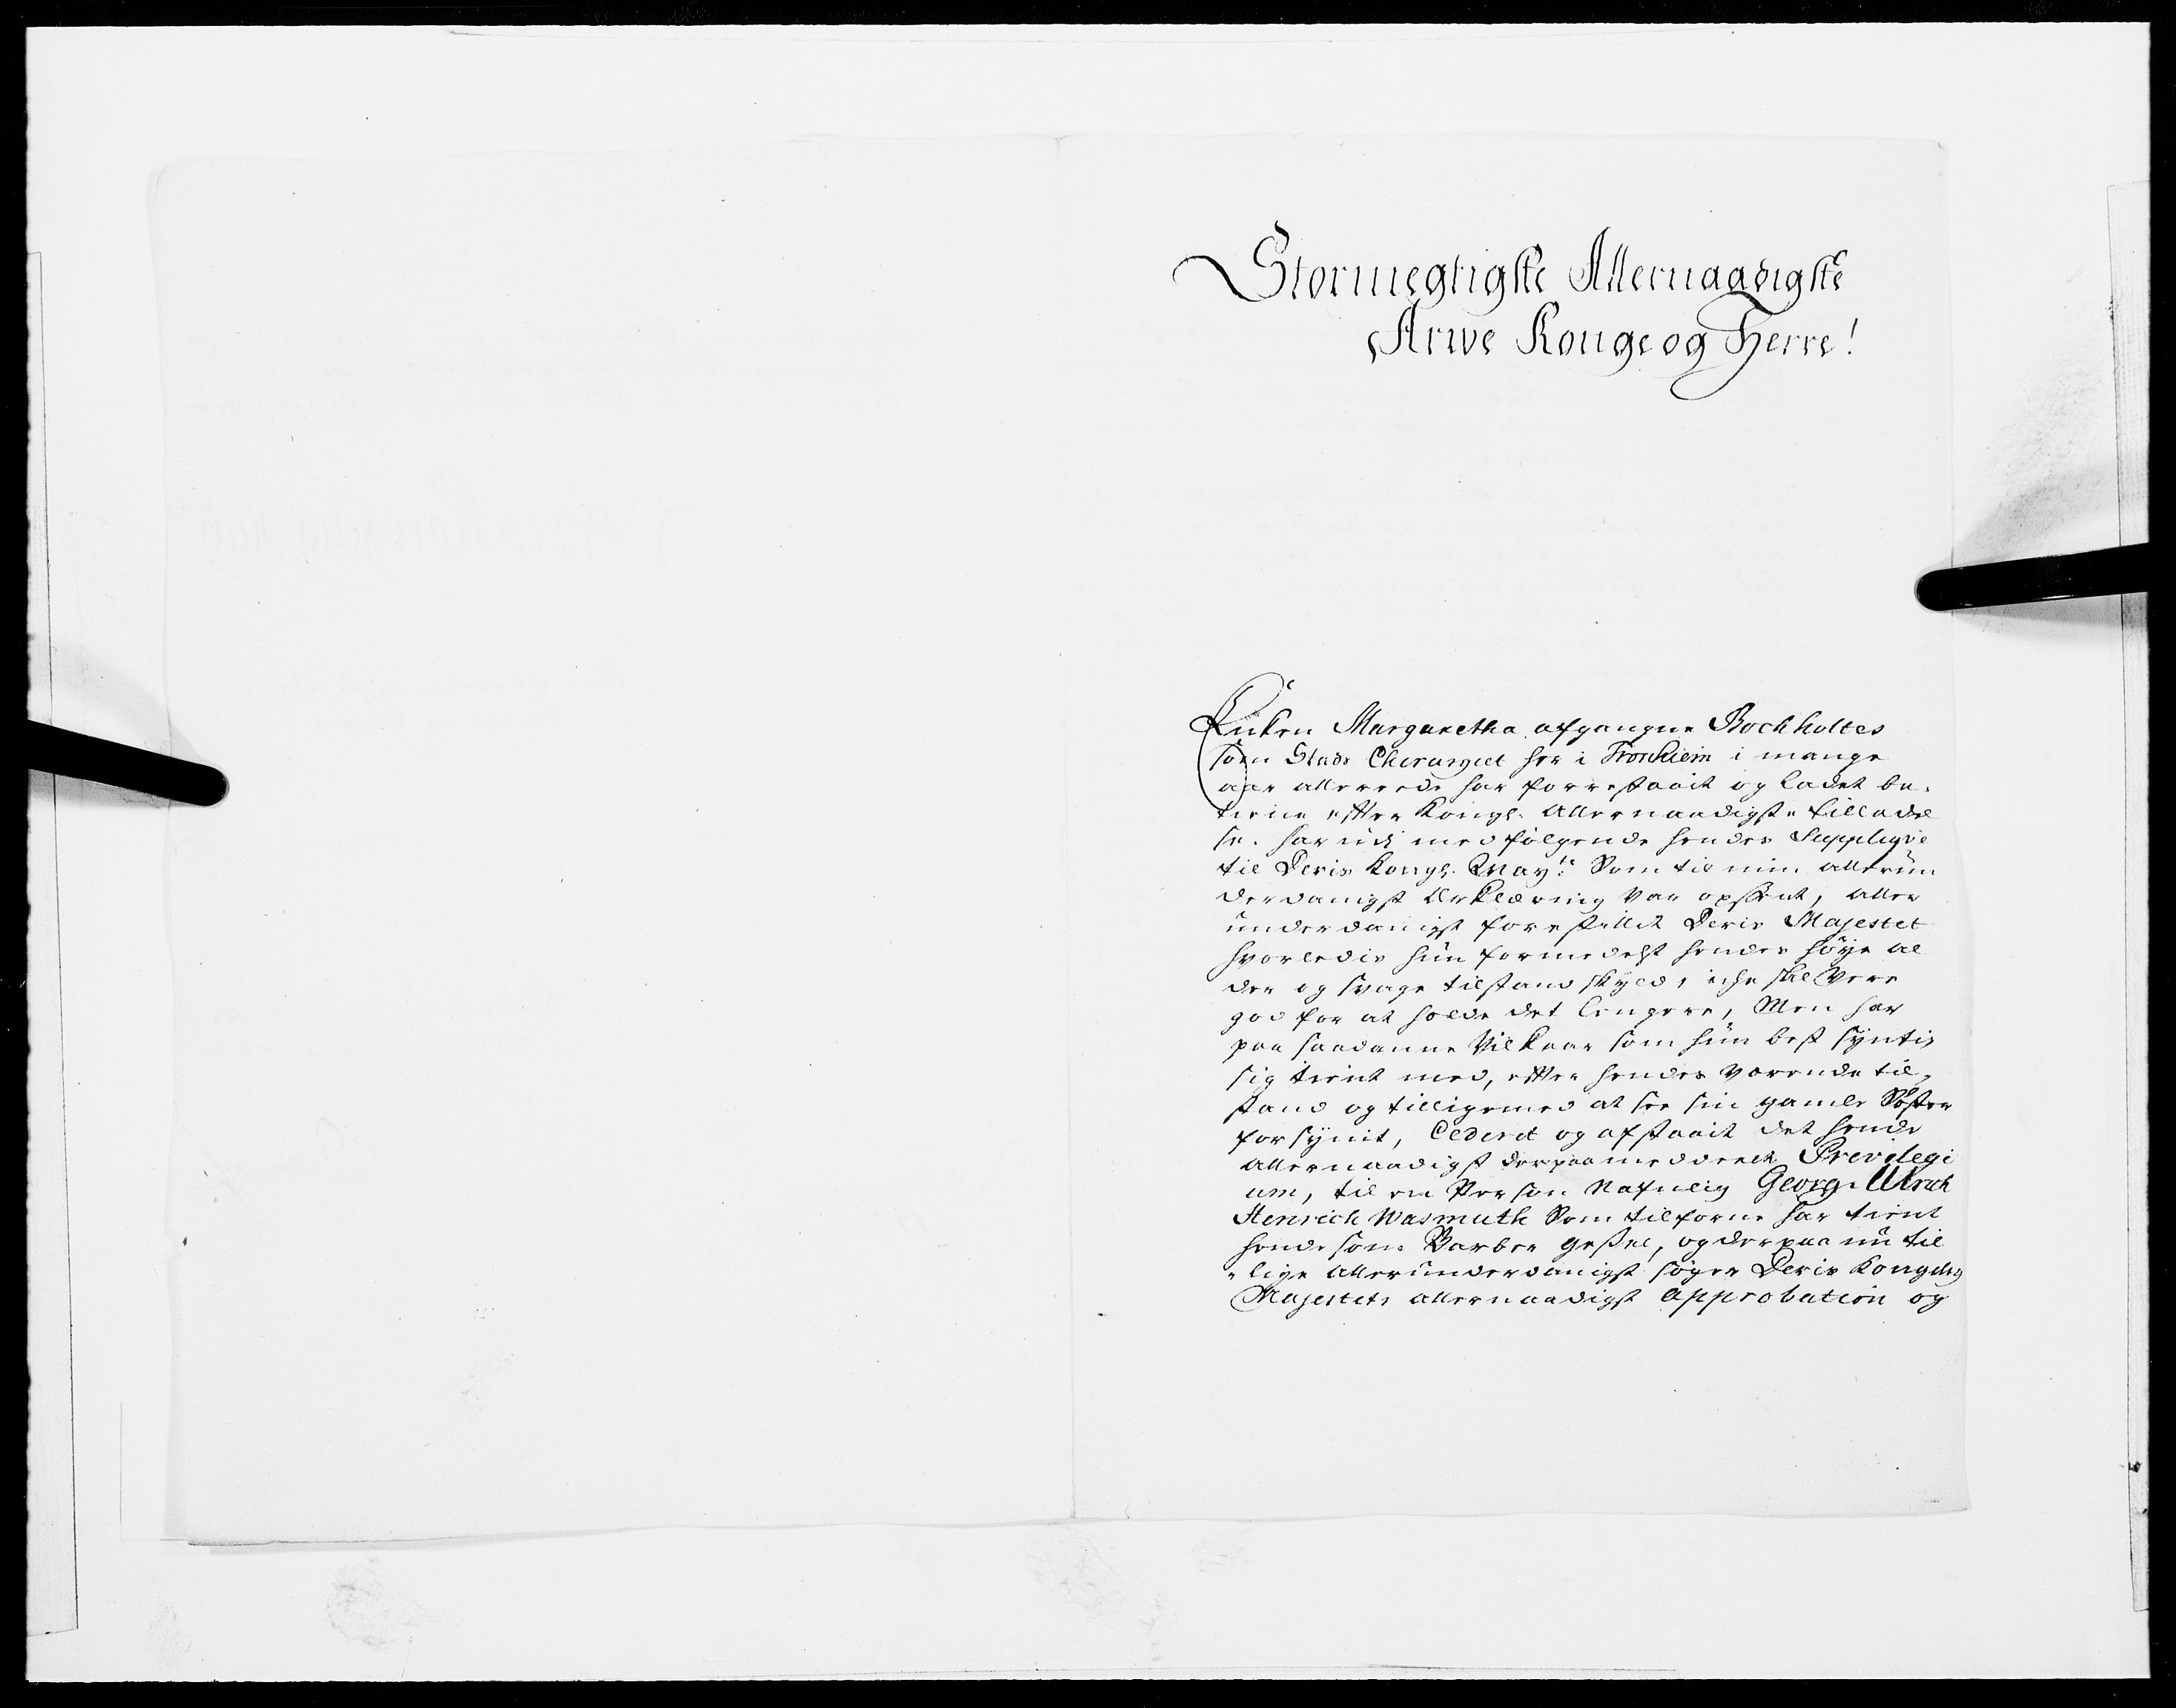 Stormegtigste Allernaadigste
Arwe Konge og Herre!
Enken Margaretha afgangne Bochholtes
som Stads Chirurgiet her i Tronhiem i mange
aar allereede har forrestaait og ladet be¬
tiene efter Kongl. Allernaadigste tilladel
se. har udj medfølgende hendes Supplique
til Deris Kongl. Mayt: Som til min allerun
derdanigst Erklæring var opsent, aller
underdanigst forestillet Deris Majestet
hvorledis hun formedelst hendes høye al
der og svage tilstand skyld, iche skal Vere
god for at holde det lengere, Men har
paa saadanne Vilkaar som hun best syntis
sig tient med, efter hendes værende til,
stand og tilligemed at see sin gamle Søster
forsynit, Cederet og afstaait det hende
allernaadigst derpaa meddeelt Previlegi
um, til en Person Nafnlig Georg Ulrich
Henrich Wasmuth Som tilforne har tient
hende som Barber gesel, og derpaa nu til
lige allerunderdanigst søger Deris Kongelig
Majestets allernaadigst approbation og